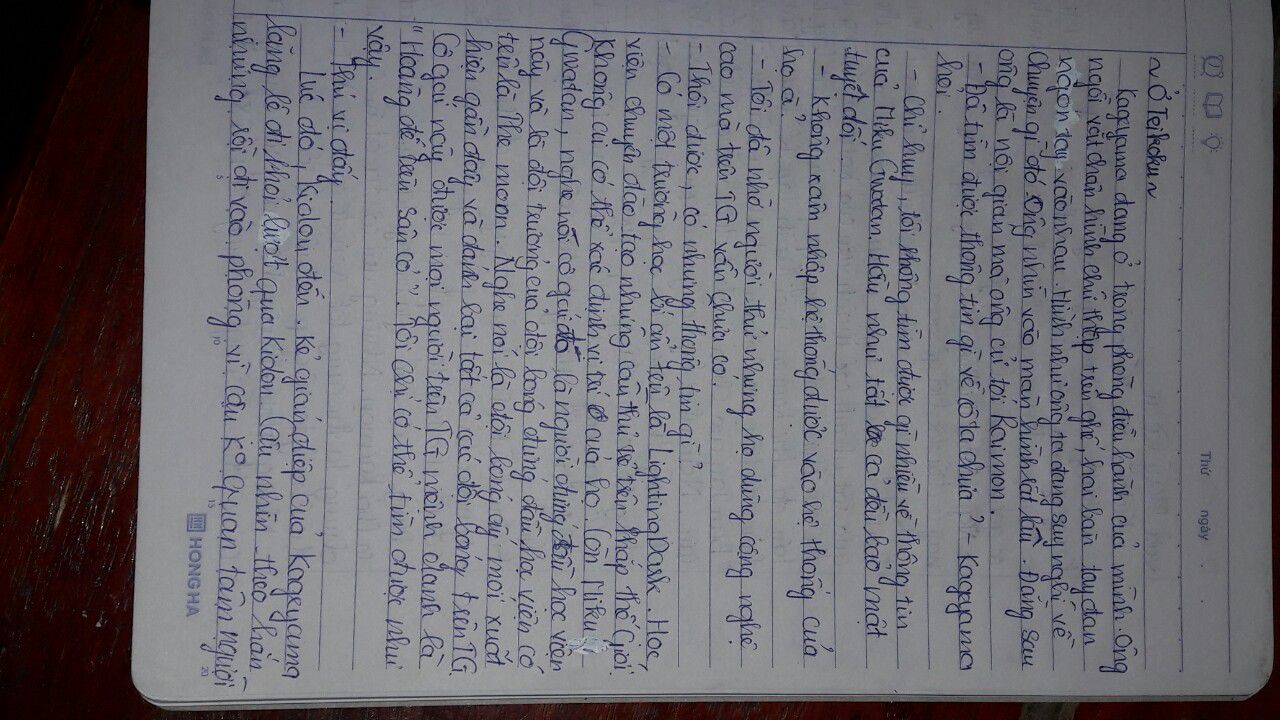 Thứ ngày
~ Ở Teikoku ~
Kageyama đang ở trong phòng điều hành của mình. Ông
ngồi vắt chân hình chữ thập trên ghế, hai bàn tay đan
ngón tay vào nhau. Hình như ông ta đang suy nghĩ về
chuyện gì đó. Ông nhìn vào màn hình rất lâu. Đằng sau
ông là nội gián mà ông cử tới Raimon.
- Đã tìm được thông tin gì về cô ta chưa? - Kageyama
hỏi.
- Chỉ huy, tôi không tìm được gì nhiều về thông tin
của Miku Gwatan. Hầu như tất cả đều bảo mật
tuyệt đối
- Không xâm nhập hệ thống được vào hệ thống của
họ à.
- Tôi đã nhờ người thử nhưng họ dùng công nghệ
cao mà trên TG vẫn chưa có.
- Thôi được, có những thông tin gì?
- Có một trường học bí ẩn tên là Lighting Dark. Học
viện chuyên đào tạo những cầu thủ trên khắp thế giới.
Không ai có thể xác định vị trí của họ. Còn Miku
Gwatan, nghe nói cô gái đó là người đứng đầu học viện
này và là đội trưởng của đội bóng đứng đầu học viện có
tên là The moon. Nghe nói là đội bóng ấy mới xuất
hiện gần đây và đánh bại tất cả các đội bóng trên TG.
Cô gái này được mọi người trên TG mệnh danh là
"Hoàng đế trên sân cỏ". Tôi chỉ có thể tìm được như
vậy.
- Thú vị đấy.
Lúc đó, Kidou đến. Kẻ gián điệp của Kageyama
lẳng lẽ đi khỏi lướt qua Kidou. Cậu nhìn theo hắn
nhưng rồi đi vào phòng vì cậu k° quan tâm người
5 10 15 20
HONG HA